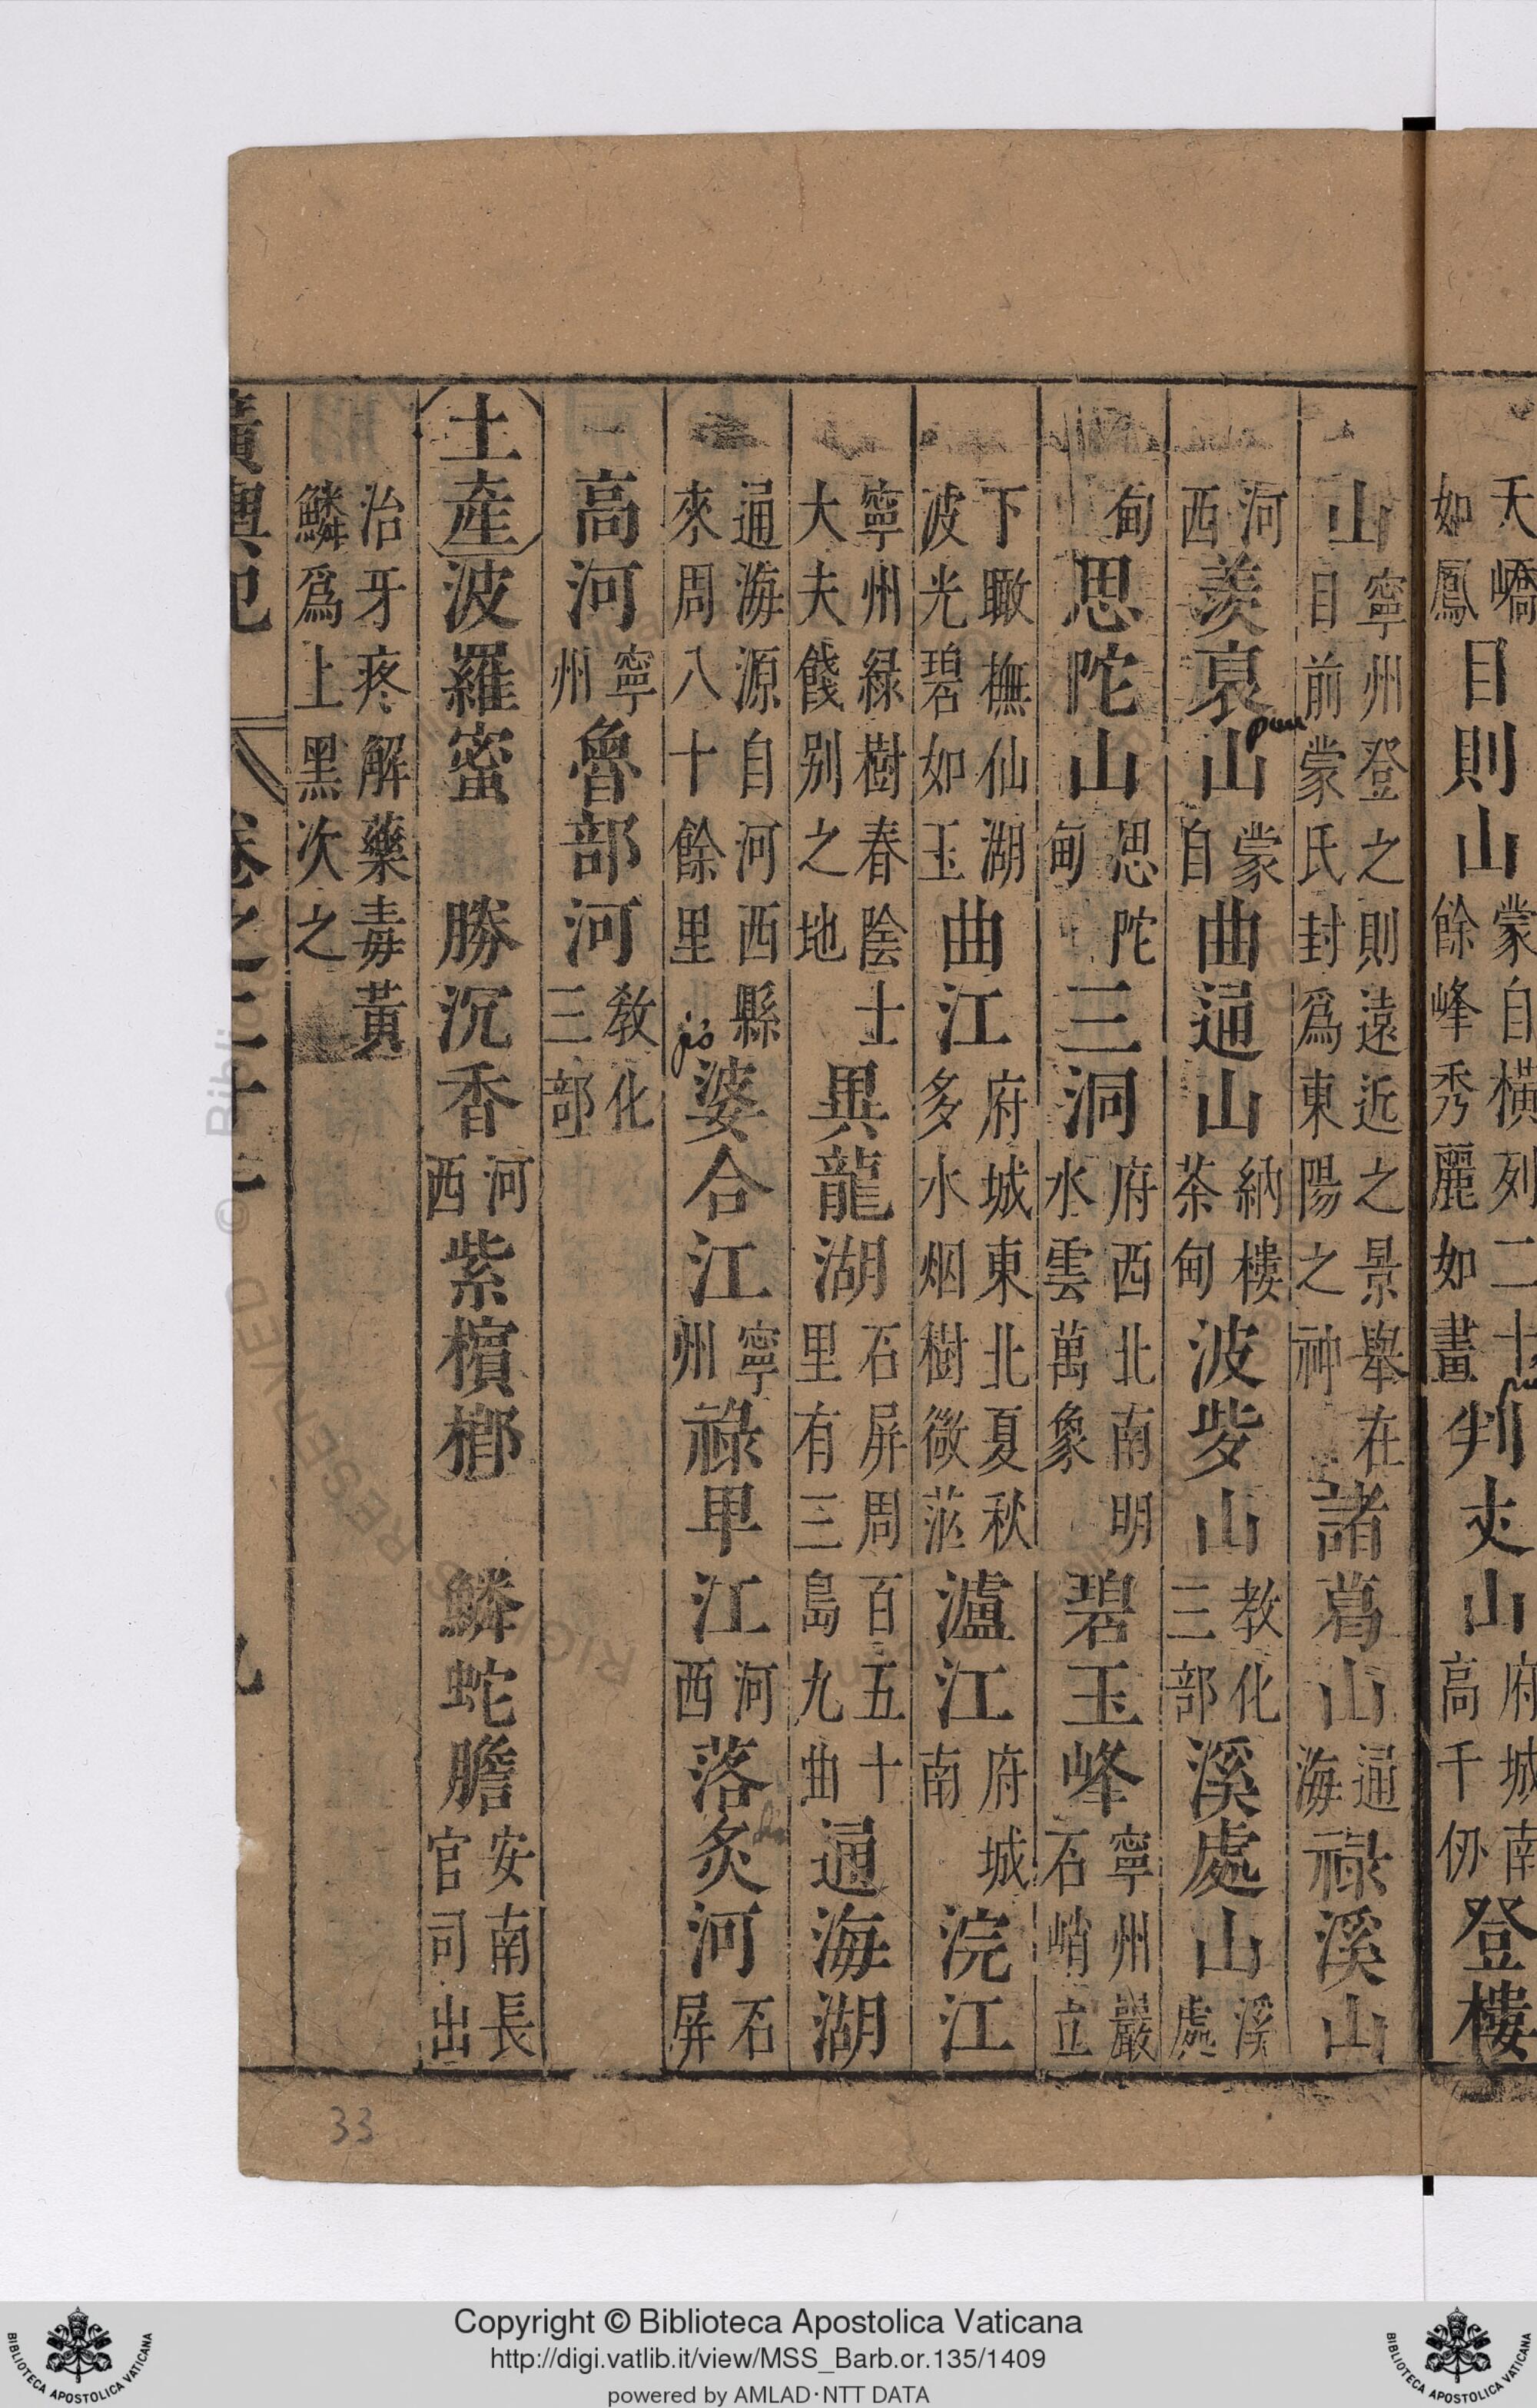 天嶠如鳳目則山蒙自橫列二十餘峰秀麗如畫判丈山府城南高千仞登樓
山寧州登之則遠近之景舉在目前蒙氏封爲東陽之神諸葛山通海祿溪山
河西羨裒山蒙自曲通山納樓茶甸波㱔山教化三部溪處山溪處
甸思陀山思陀甸三洞府西北南明水雲萬象碧玉峰寧州巖石峭立
下瞰撫仙湖波光碧如玉曲江府城東北夏秋多水烟樹微茫瀘江府城南浣江
寧州綠樹春陰士大夫餞别之地異龍湖石屏周百五十里有三島九曲通海湖
通海源自河西縣來周八十餘里婆合江寧州祿卑江河西落炙河石屏
高河寧州魯部河教化三部
土産波羅蜜 勝沉香河西紫檳榔 鱗蛇膽安南長官司出
治牙疼解藥毒黃鱗爲上黑次之
廣輿記 卷之二十 九
33
Copyright © Biblioteca Apostolica Vaticana
http://digi.vatlib.it/view/MSS_Barb.or.135/1409
powered by AMLAD·NTT DATA